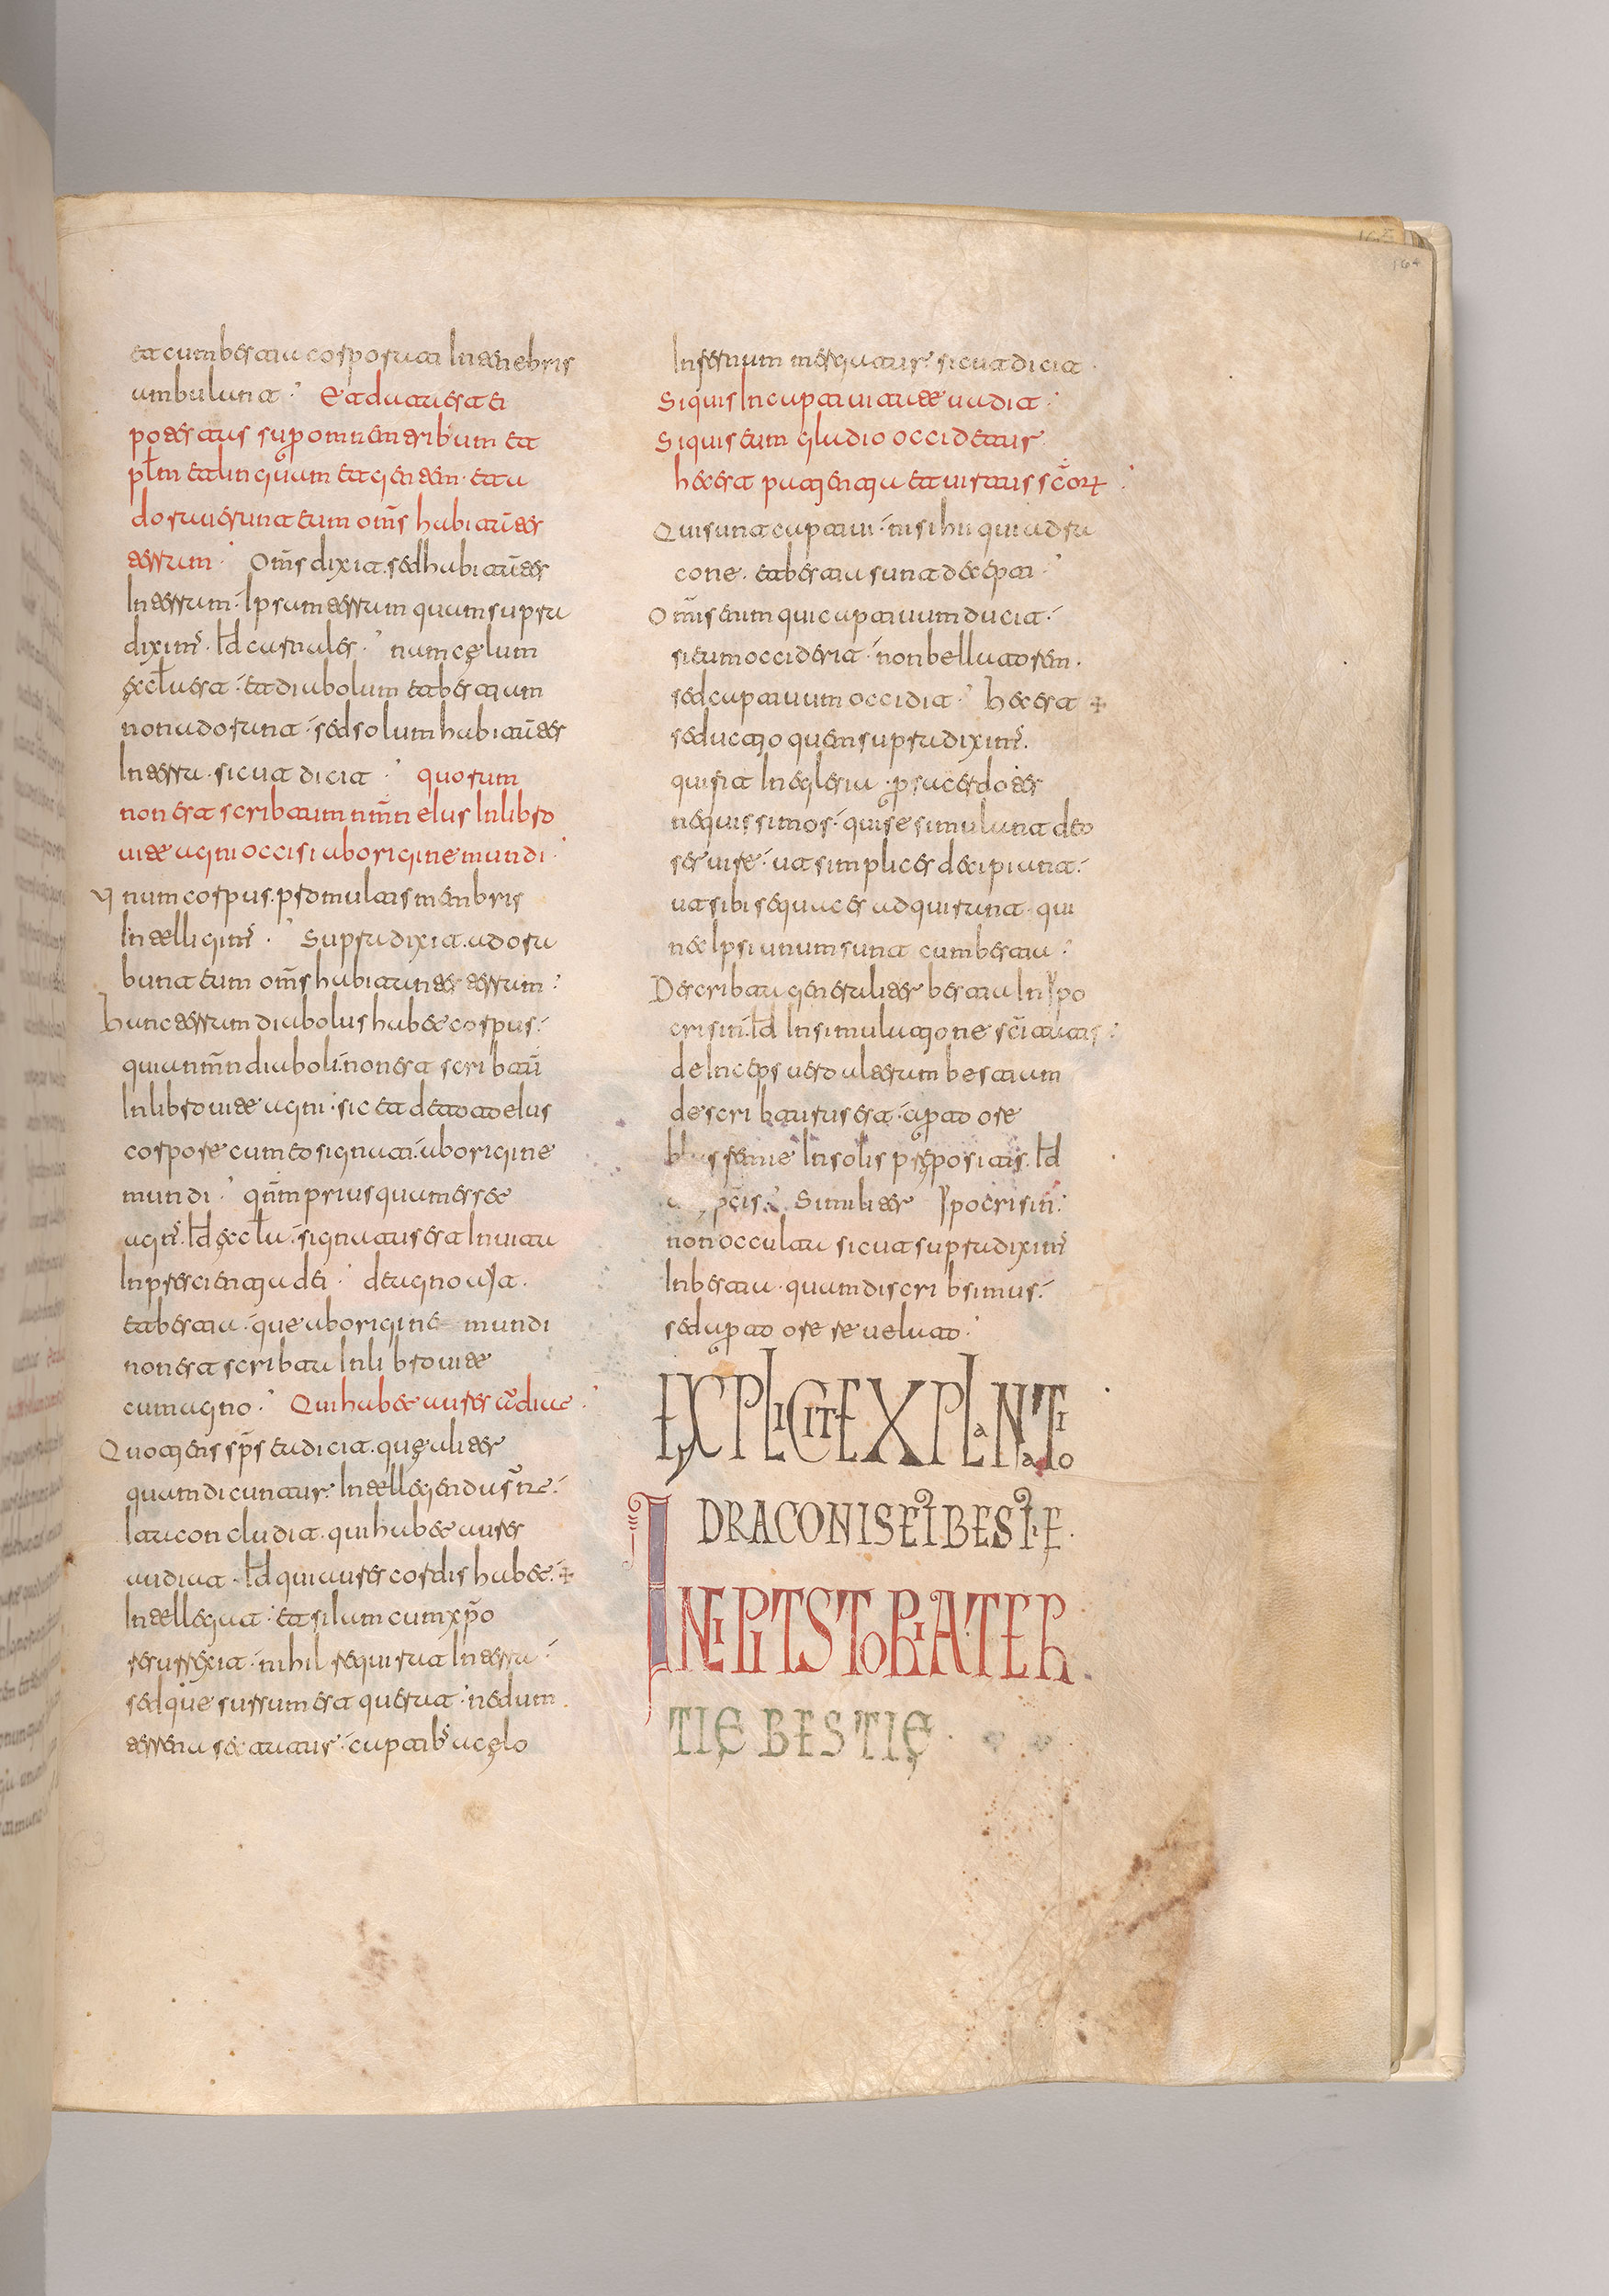 et cum bestia corporati In tenebris
ambulant. Et data est ei
potestas sup omnem tribum et
plm et linguam et gentem. et a
doraverunt eum oms habitātes
terram. Oms dixit. sed habitātes
In terram. Ipsum terram quam supra
diximˢ. Id carnales. nam cęlum
ęccla est. et diabolum et bestiam
non adorant. sed solum habitātes
In terra. sicut dicit. quorum
non est scribtum nmn eIus In libro
vite agni occisi ab origine mundi.
Unum corpus. pro multis membris
Intelligimˢ. Supra dixit. adora
bunt eum oms habitantes terram.
hunc terram diabolus habet corpus.
quia nmn diaboli. non est scribtū
In libro vite agni. sic et de toto eIus
corpore cum eo signati. ab origine
mundi. qnm prius quam esset
agnˢ. Id ęccla. signatus est In vita
In prescientia dei.
et bestia. que ab origine mundi
non est scribta In libro vite
cum agno. Qui habet aures
Quotiens sps ea dicit. quę aliter
quam dicuntur. Intellegendus
ita concludit. qui habet aures
audiat. Id qui aures cordis habet.
Intellegat. et si iam cum xpo
resurrexit. nihil requirat In terra.
sed que sursum est querat. nedum
terrena sectatur. captibˢ a cęlo
Infernum mergatur. sicut dicit.
Si quis In captivitate vadit.
Si quis eum gladio occidetur.
hec est patientia et virtus scōrꝝ
Qui sunt captivi. nisi hii qui a dra
cone. et bestia sunt decepti.
Omis enim qui captivum ducit.
si eum occiderit. non bellatorem.
sed captivum occidit. hec est
seductio quem supra diximˢ.
qui fit In eglesia. p sacerdotes
nequissimos. qui se simulant deo
servire. ut simplices decipiunt.
ut sibi sequaces adquirant. qui
nec Ipsi unum sunt cum bestia.
Describta generaliter bestia In Ypo
crisin. Id In simulatione scītatis.
deInceps vero ulterum bestiam
describturus est. apto ore
blasfemie In solis prępositis. Id
Similiter Ypocrisin.
non occulta sicut supra diximˢ
In bestia. quam discribsimus.
sed apto ore revelato.
EXPLICIT EXPLANATIO
DRACONIS ET BESTIE.
INCIPIT STORIA TER
TIĘ BESTIĘ.